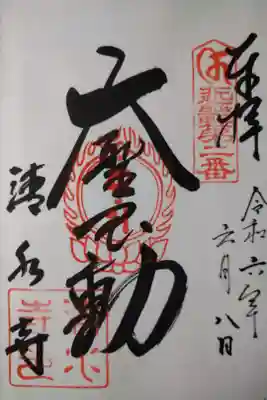 奉拝
二番
令和六年
六月八日
大聖不動
清水寺